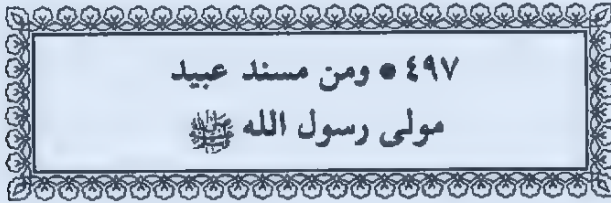 ٤٩٧ ● ومن مسند عبيد
مولى رسول الله ﷺ